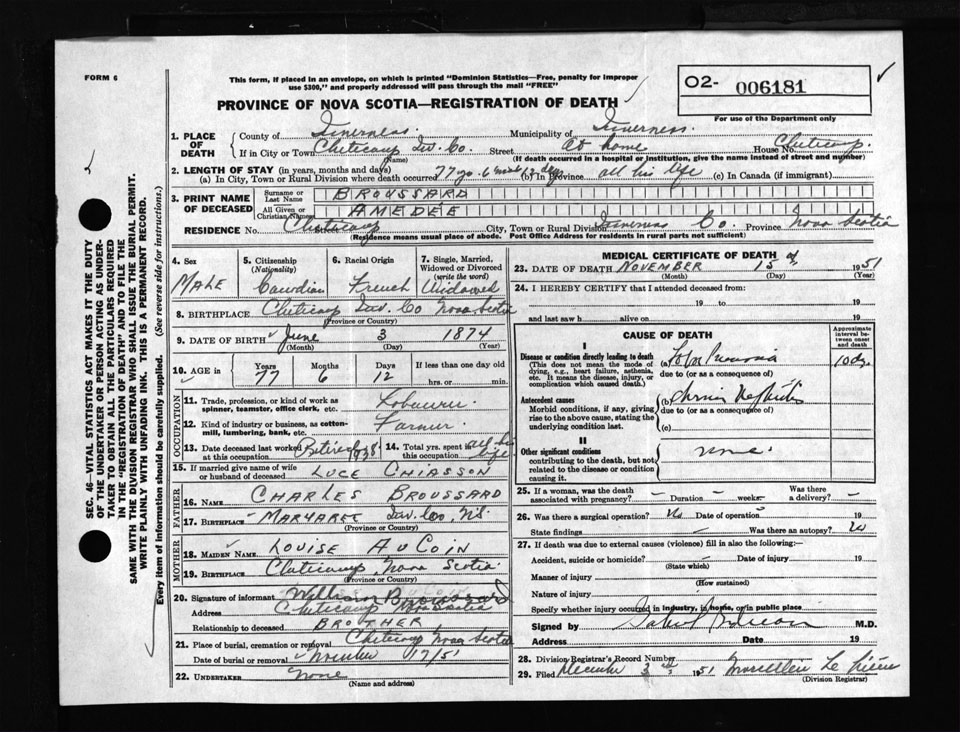 FORM 6
This form, if placed in an envelope, on which is printed "Dominion Statistics—Free, penalty for improper
use $300," and properly addressed will pass through the mail "FREE"
PROVINCE OF NOVA SCOTIA—REGISTRATION OF DEATH
O2- 006181
For use of the Department only
1. PLACE OF DEATH
County of Inverness Municipality of Inverness
If in City or Town Cheticamp Inv. Co. Street At home House No. Cheticamp
(Name) (If death occurred in a hospital or institution, give the name instead of street and number)
2. LENGTH OF STAY (in years, months and days)
(a) In City, Town or Rural Division where death occurred 77 yrs 6 mos 12 dys (b) In Province all his life (c) In Canada (if immigrant)
3. PRINT NAME OF DECEASED
Surname or Last Name BROUSSARD
All Given or Christian Names AMEDÉE
RESIDENCE No. Cheticamp City, Town or Rural Division Inverness Co Province Nova Scotia
(Residence means usual place of abode. Post Office Address for residents in rural parts not sufficient)
4. Sex MALE
5. Citizenship (Nationality) Canadian
6. Racial Origin French
7. Single, Married, Widowed or Divorced (write the word) Widowed
8. BIRTHPLACE Cheticamp Inv. Co Nova Scotia
(Province or Country)
9. DATE OF BIRTH June 3 1874
(Month) (Day) (Year)
10. AGE in Years 77 Months 6 Days 12 If less than one day old hrs. or min.
OCCUPATION
11. Trade, profession, or kind of work as spinner, teamster, office clerk, etc. Labourer
12. Kind of industry or business, as cotton-mill, lumbering, bank, etc. Farmer
13. Date deceased last worked at this occupation Retired 1938
14. Total yrs. spent in this occupation all his life
15. If married give name of wife or husband of deceased LUCE CHIASSON
FATHER
16. NAME CHARLES BROUSSARD
17. BIRTHPLACE MARGAREE Inv. Co, N.S.
(Province or Country)
MOTHER
18. MAIDEN NAME LOUISE AUCOIN
19. BIRTHPLACE Cheticamp, Nova Scotia
(Province or Country)
20. Signature of informant William Broussard
Address Cheticamp Nova Scotia
Relationship to deceased BROTHER
21. Place of burial, cremation or removal Cheticamp Nova Scotia
Date of burial or removal November 17/51
22. UNDERTAKER None
(Name and address)
MEDICAL CERTIFICATE OF DEATH
23. DATE OF DEATH NOVEMBER 15 1951
(Month) (Day) (Year)
24. I HEREBY CERTIFY that I attended deceased from:
19 to 19
and last saw h alive on 19
CAUSE OF DEATH
Approximate interval between onset and death
I
Disease or condition directly leading to death (a) Lobar Pneumonia 10 dy.
(This does not mean the mode of dying, e.g., heart failure, asthenia, etc. It means the disease, injury, or complication which caused death.)
due to (or as a consequence of)
Antecedent causes (b) Chronic Nephritis
Morbid conditions, if any, giving rise to the above cause, stating the underlying condition last.
due to (or as a consequence of)
(c)
II
Other significant conditions none.
contributing to the death, but not related to the disease or condition causing it.
25. If a woman, was the death associated with pregnancy? — Duration — weeks Was there a delivery? —
26. Was there a surgical operation? No Date of operation
State findings — Was there an autopsy? No
27. If death was due to external causes (violence) fill in also the following:—
Accident, suicide or homicide? Date of injury 19
(State which)
Manner of injury
(How sustained)
Nature of injury
Specify whether injury occurred in industry, in home, or in public place
Signed by M.D.
Address Date 19
28. Division Registrar's Record Number
29. Filed December 3rd 1951
(Division Registrar)
SEC. 46—VITAL STATISTICS ACT MAKES IT THE DUTY
OF THE UNDERTAKER OR PERSON ACTING AS UNDER-
TAKER TO OBTAIN ALL THE PARTICULARS REQUIRED
IN THE "REGISTRATION OF DEATH" AND TO FILE THE
SAME WITH THE DIVISION REGISTRAR WHO SHALL ISSUE THE BURIAL PERMIT.
WRITE PLAINLY WITH UNFADING INK. THIS IS A PERMANENT RECORD.
Every item of information should be carefully supplied. (See reverse side for instructions.)